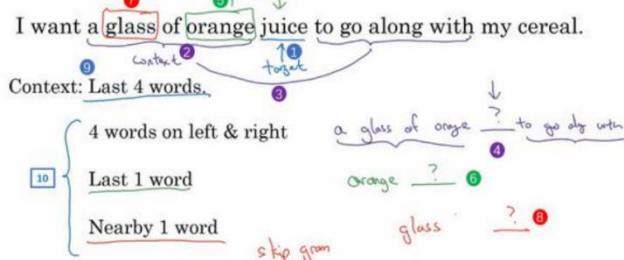 7 5
I want a glass of orange juice to go along with my cereal.
context 2 1
9 target
Context: Last 4 words. 3
4 words on left & right a glass of orange ? to go alg with
4
10 Last 1 word orange ? 6
Nearby 1 word glass ? 8
skip gram